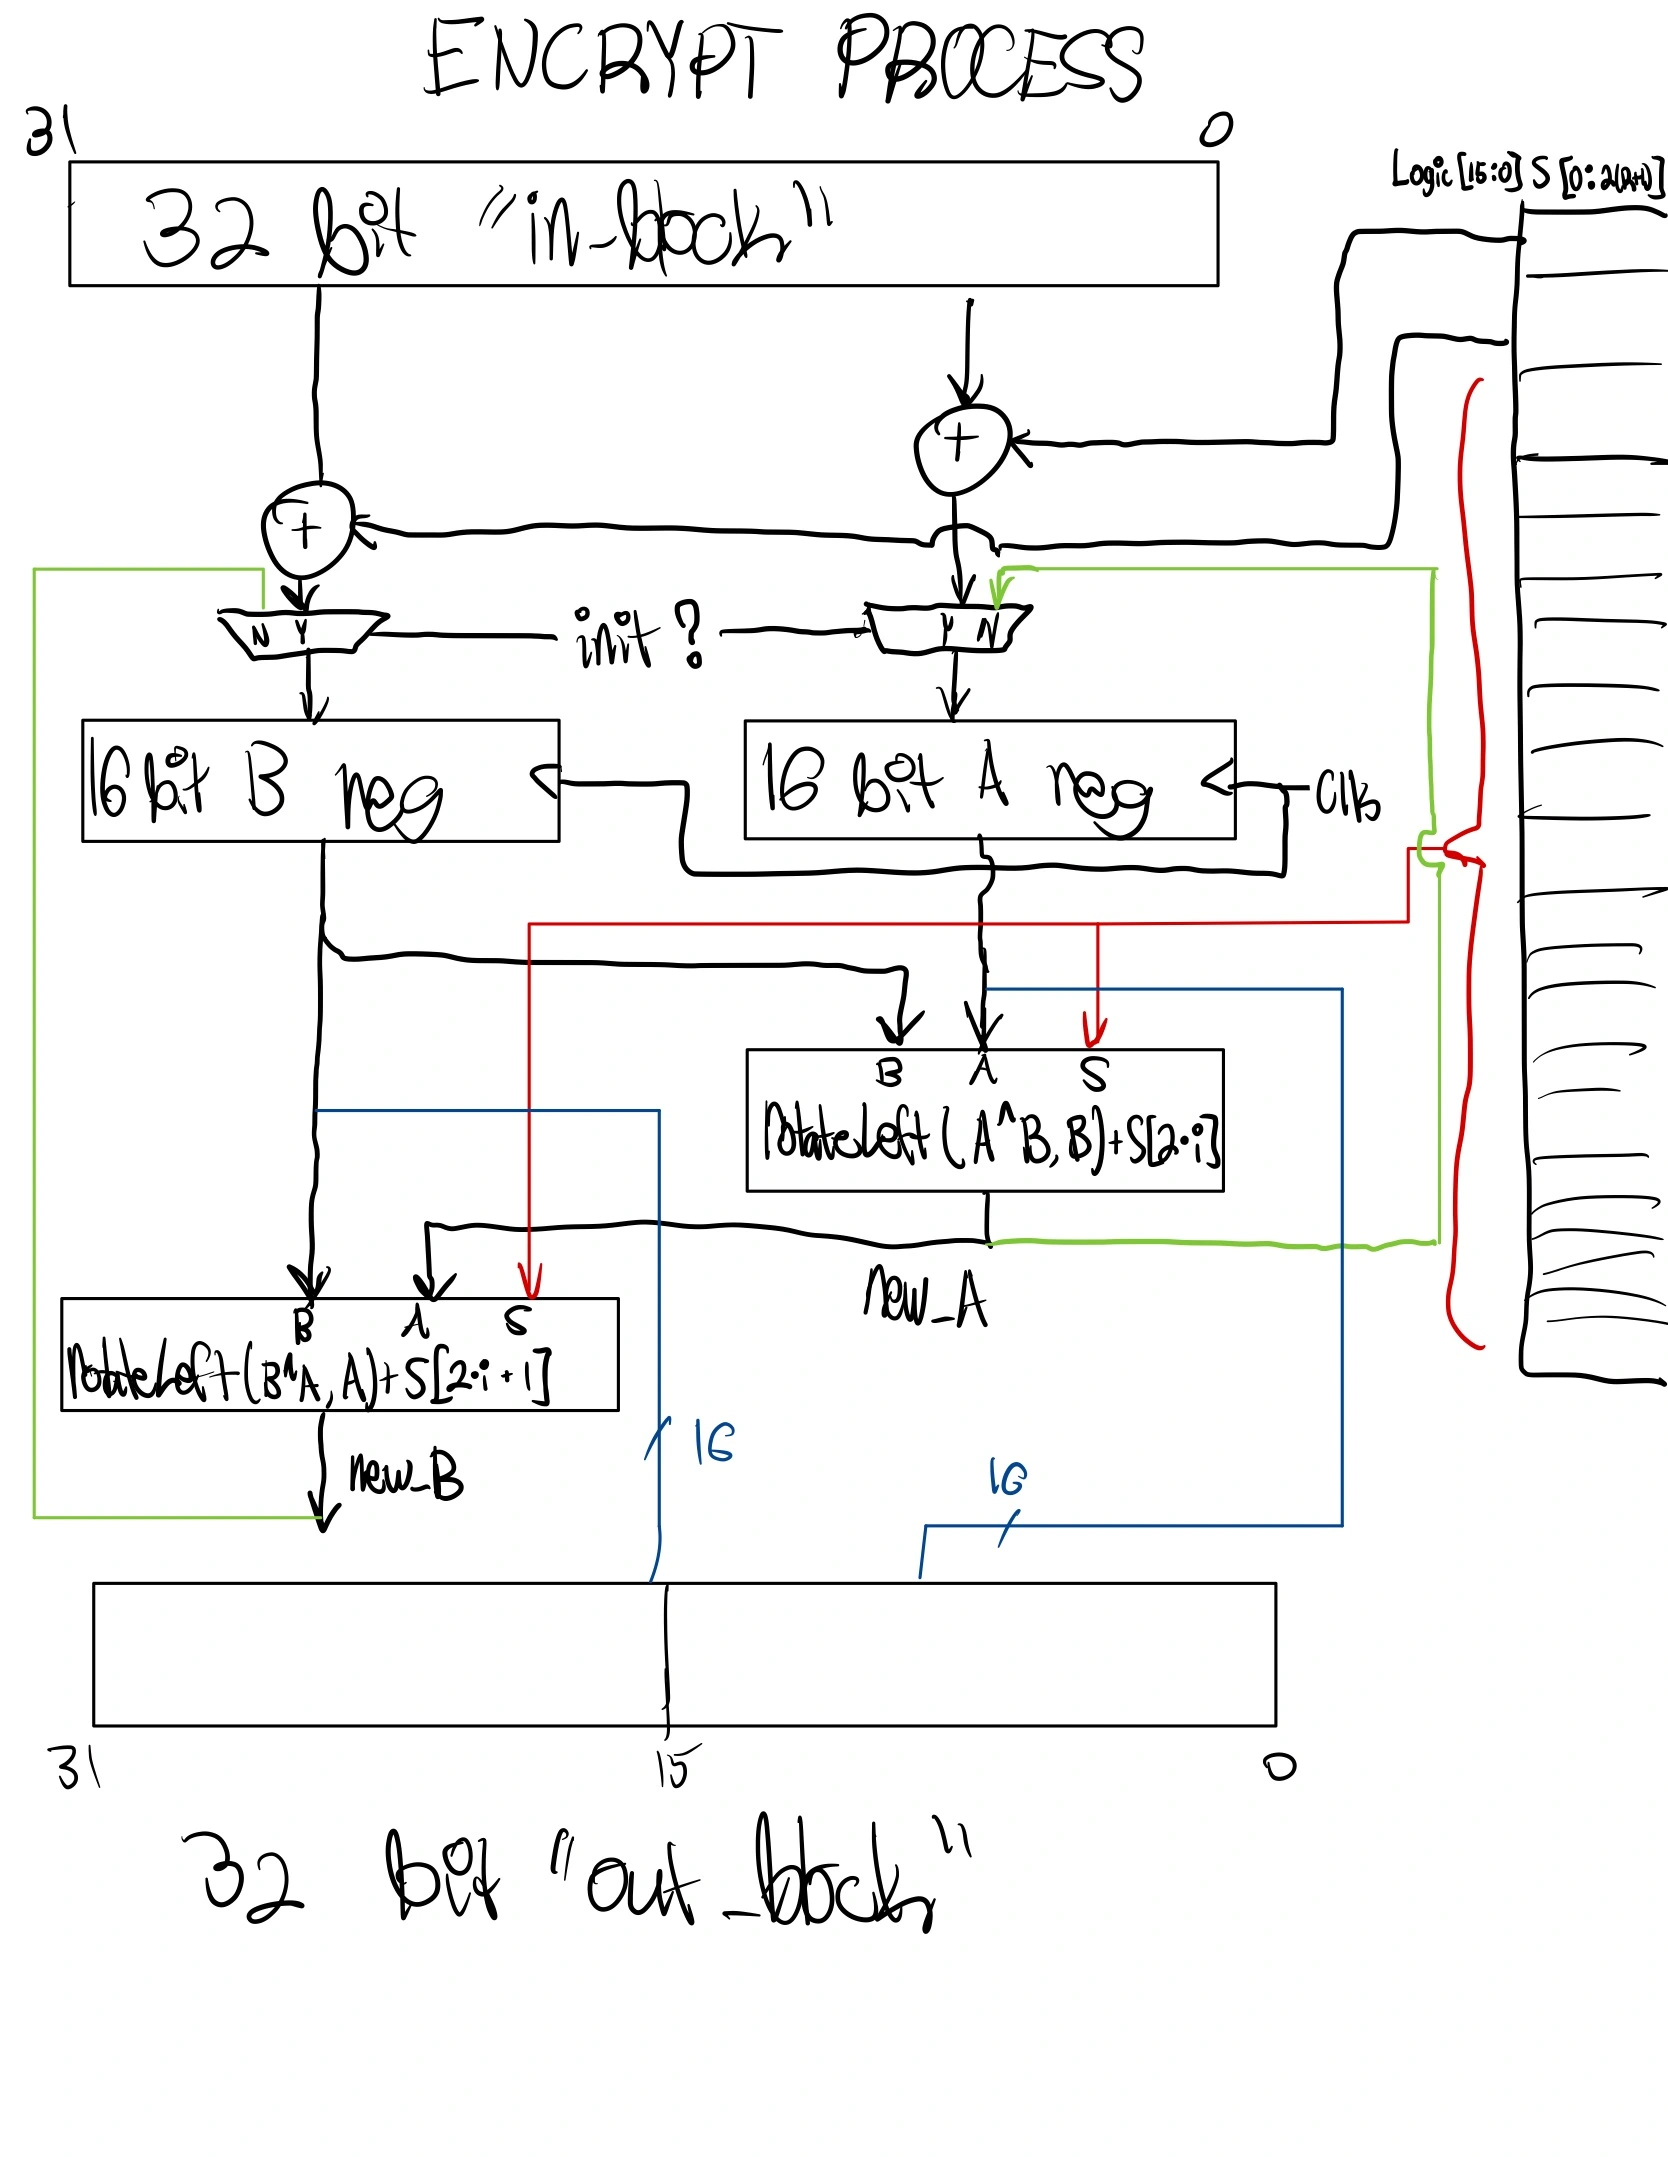 ENCRYPT PROCESS
31 0
Logic [15:0] S [0: 2(R+1)]
32 bit "in_block"
+
+
N Y init? Y N
16 bit B reg 16 bit A reg Clk
B A S
rotateLeft (A^B, B) + S[2·i]
new_A
B A S
rotateLeft (B^A, A) + S[2·i+1]
new_B
16
16
31 15 0
32 bit "out_block"